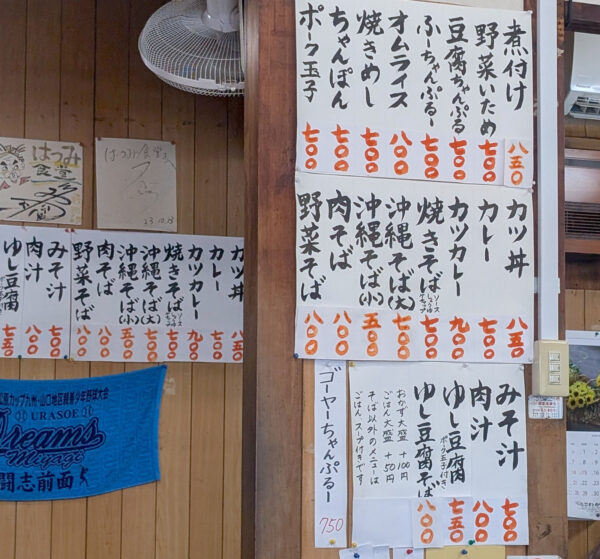 煮付け 八五〇
野菜いため 七〇〇
豆腐ちゃんぷる 七〇〇
ふーちゃんぷるー 七〇〇
オムライス 八〇〇
焼きめし 七〇〇
ちゃんぽん 七〇〇
ポーク玉子 七〇〇
カツ丼 八五〇
カレー 七〇〇
カツカレー 九〇〇
焼きそば ソース しょうゆ ケチャップ 七〇〇
沖縄そば(大) 七〇〇
沖縄そば(小) 五〇〇
肉そば 八〇〇
野菜そば 八〇〇
みそ汁 七〇〇
肉汁 八〇〇
ゆし豆腐 ポーク玉子付き 七五〇
ゆし豆腐そば 八〇〇
おかず大盛 +100円
ごはん大盛 +50円
そば以外のメニューは
ごはん、スープ付きです
ゴーヤーちゃんぷるー 750
はつみ
食堂
はつみ食堂
カツ丼 八五〇
カレー 七〇〇
カツカレー 九〇〇
焼きそば ソース 七〇〇
沖縄そば(大) 七〇〇
沖縄そば(小) 五〇〇
肉そば 八〇〇
野菜そば 八〇〇
みそ汁 七〇〇
肉汁 八〇〇
ゆし豆腐 七五〇
カップ九州・山口地区親善少年野球大会
URASOE
Dreams
Miyagi
闘志前面